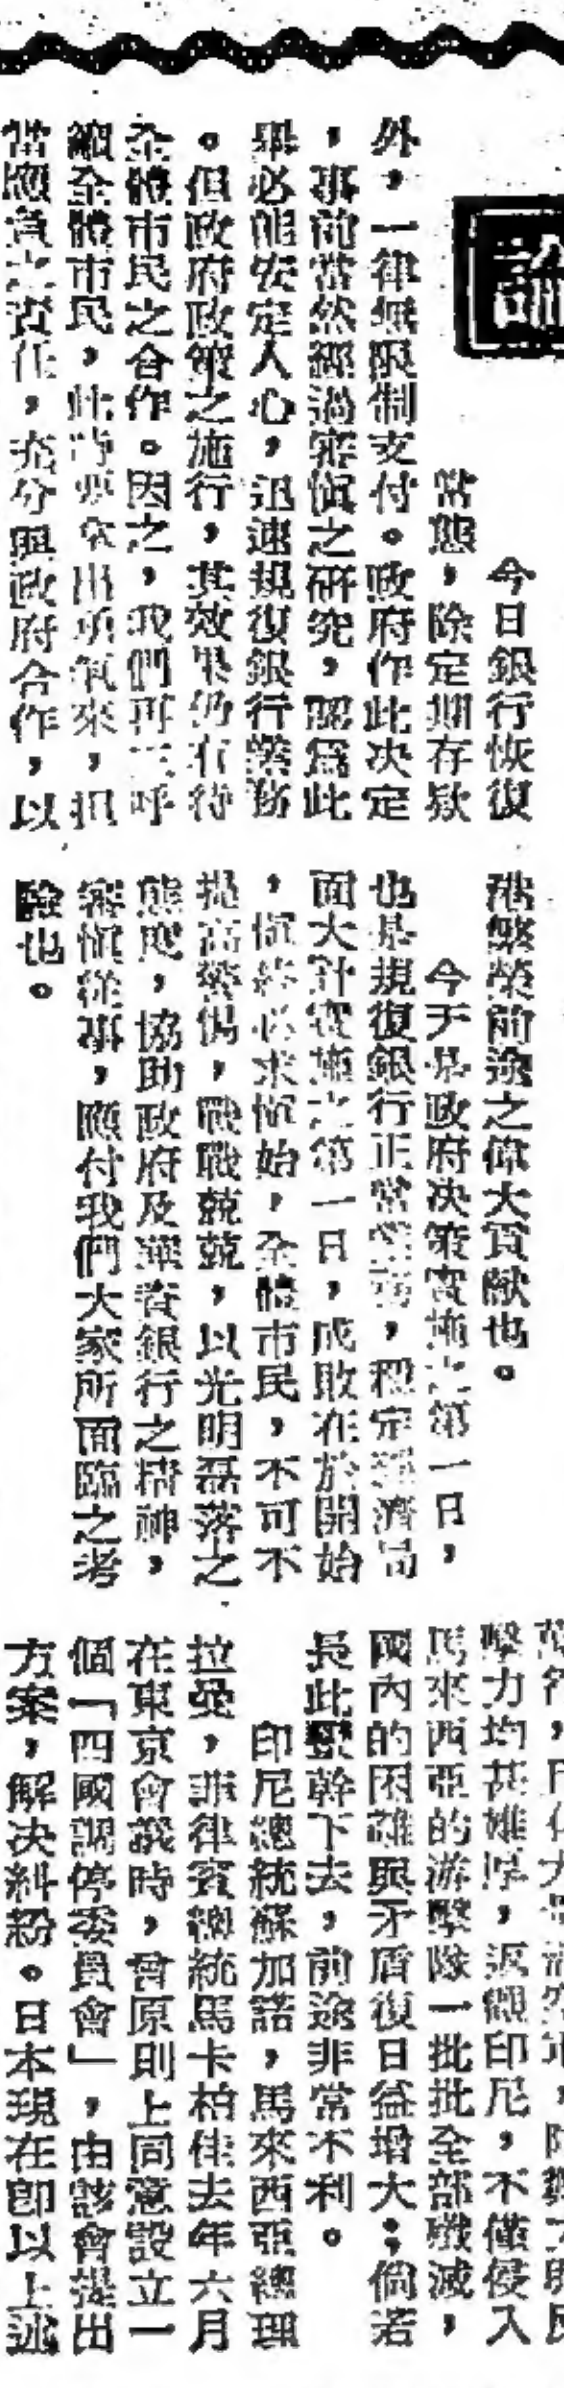 論
今日銀行恢復
常態，除定期存欵
外，一律無限制支付。政府作此决定
，事前當然經過審愼之研究，認爲此
舉必能安定人心，迅速規復銀行業務
。但政府政策之施行，其效果仍有待
全體市民之合作。因之，我們再三呼
籲全體市民，此時要拿出勇氣來，担
當應負之責任，充分與政府合作，以
港繁榮前途之偉大貢献也。
今天是政府决策實施之第一日，
也是規復銀行正常業務，穩定經濟局
面大計實施之第一日，成敗在於開始
，愼終必求愼始，全體市民，不可不
提高警惕，戰戰兢兢，以光明磊落之
態度，協助政府及華資銀行之精神，
審愼從事，應付我們大家所面臨之考
驗也。
擊力均甚雄厚，返觀印尼，不僅侵入
馬來西亞的游擊隊一批批全部殲滅，
國內的困難與矛盾復日益增大；倘若
長此蠻幹下去，前途非常不利。
印尼總統蘇加諾，馬來西亞總理
拉曼，菲律賓總統馬卡柏佳去年六月
在東京會議時，曾原則上同意設立一
個「四國調停委員會」，由該會提出
方案，解决糾紛。日本現在卽以上述